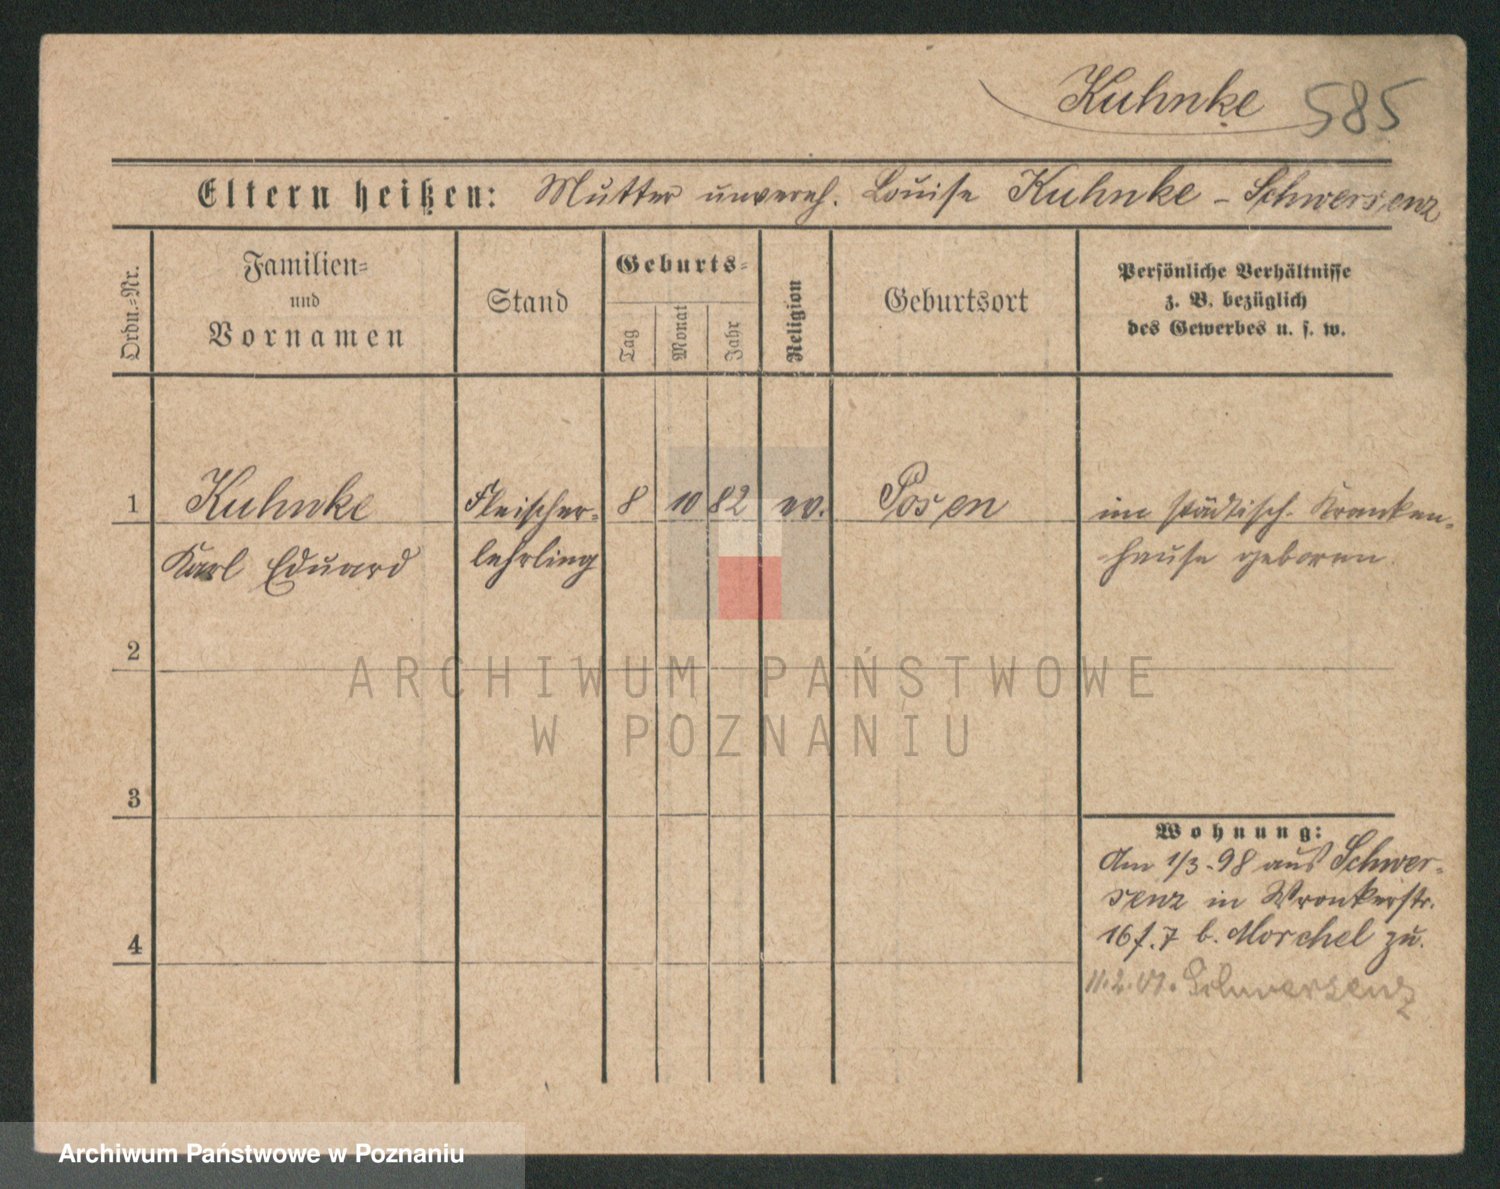 Kuhnke 585
Eltern heißen: Mutter unvereh. Louise Kuhnke - Schwersenz
Ordn.=Nr.
Familien=
und
Vornamen
Stand
Geburts=
Tag
Monat
Jahr
Religion
Geburtsort
Persönliche Verhältnisse
z. B. bezüglich
des Gewerbes u. s. w.
1 Kuhnke Fleischer- 8 10 82 ev. Posen im städtisch. Kranken-
Karl Eduard lehrling hause geboren
2
ARCHIWUM PAŃSTWOWE
W POZNANIU
3
Wohnung:
Am 1/3.98 aus Schwer-
senz in Wronkerstr.
4 16 f. 7 b. Morchel zu.
11.2.01. Schwersenz
Archiwum Państwowe w Poznaniu